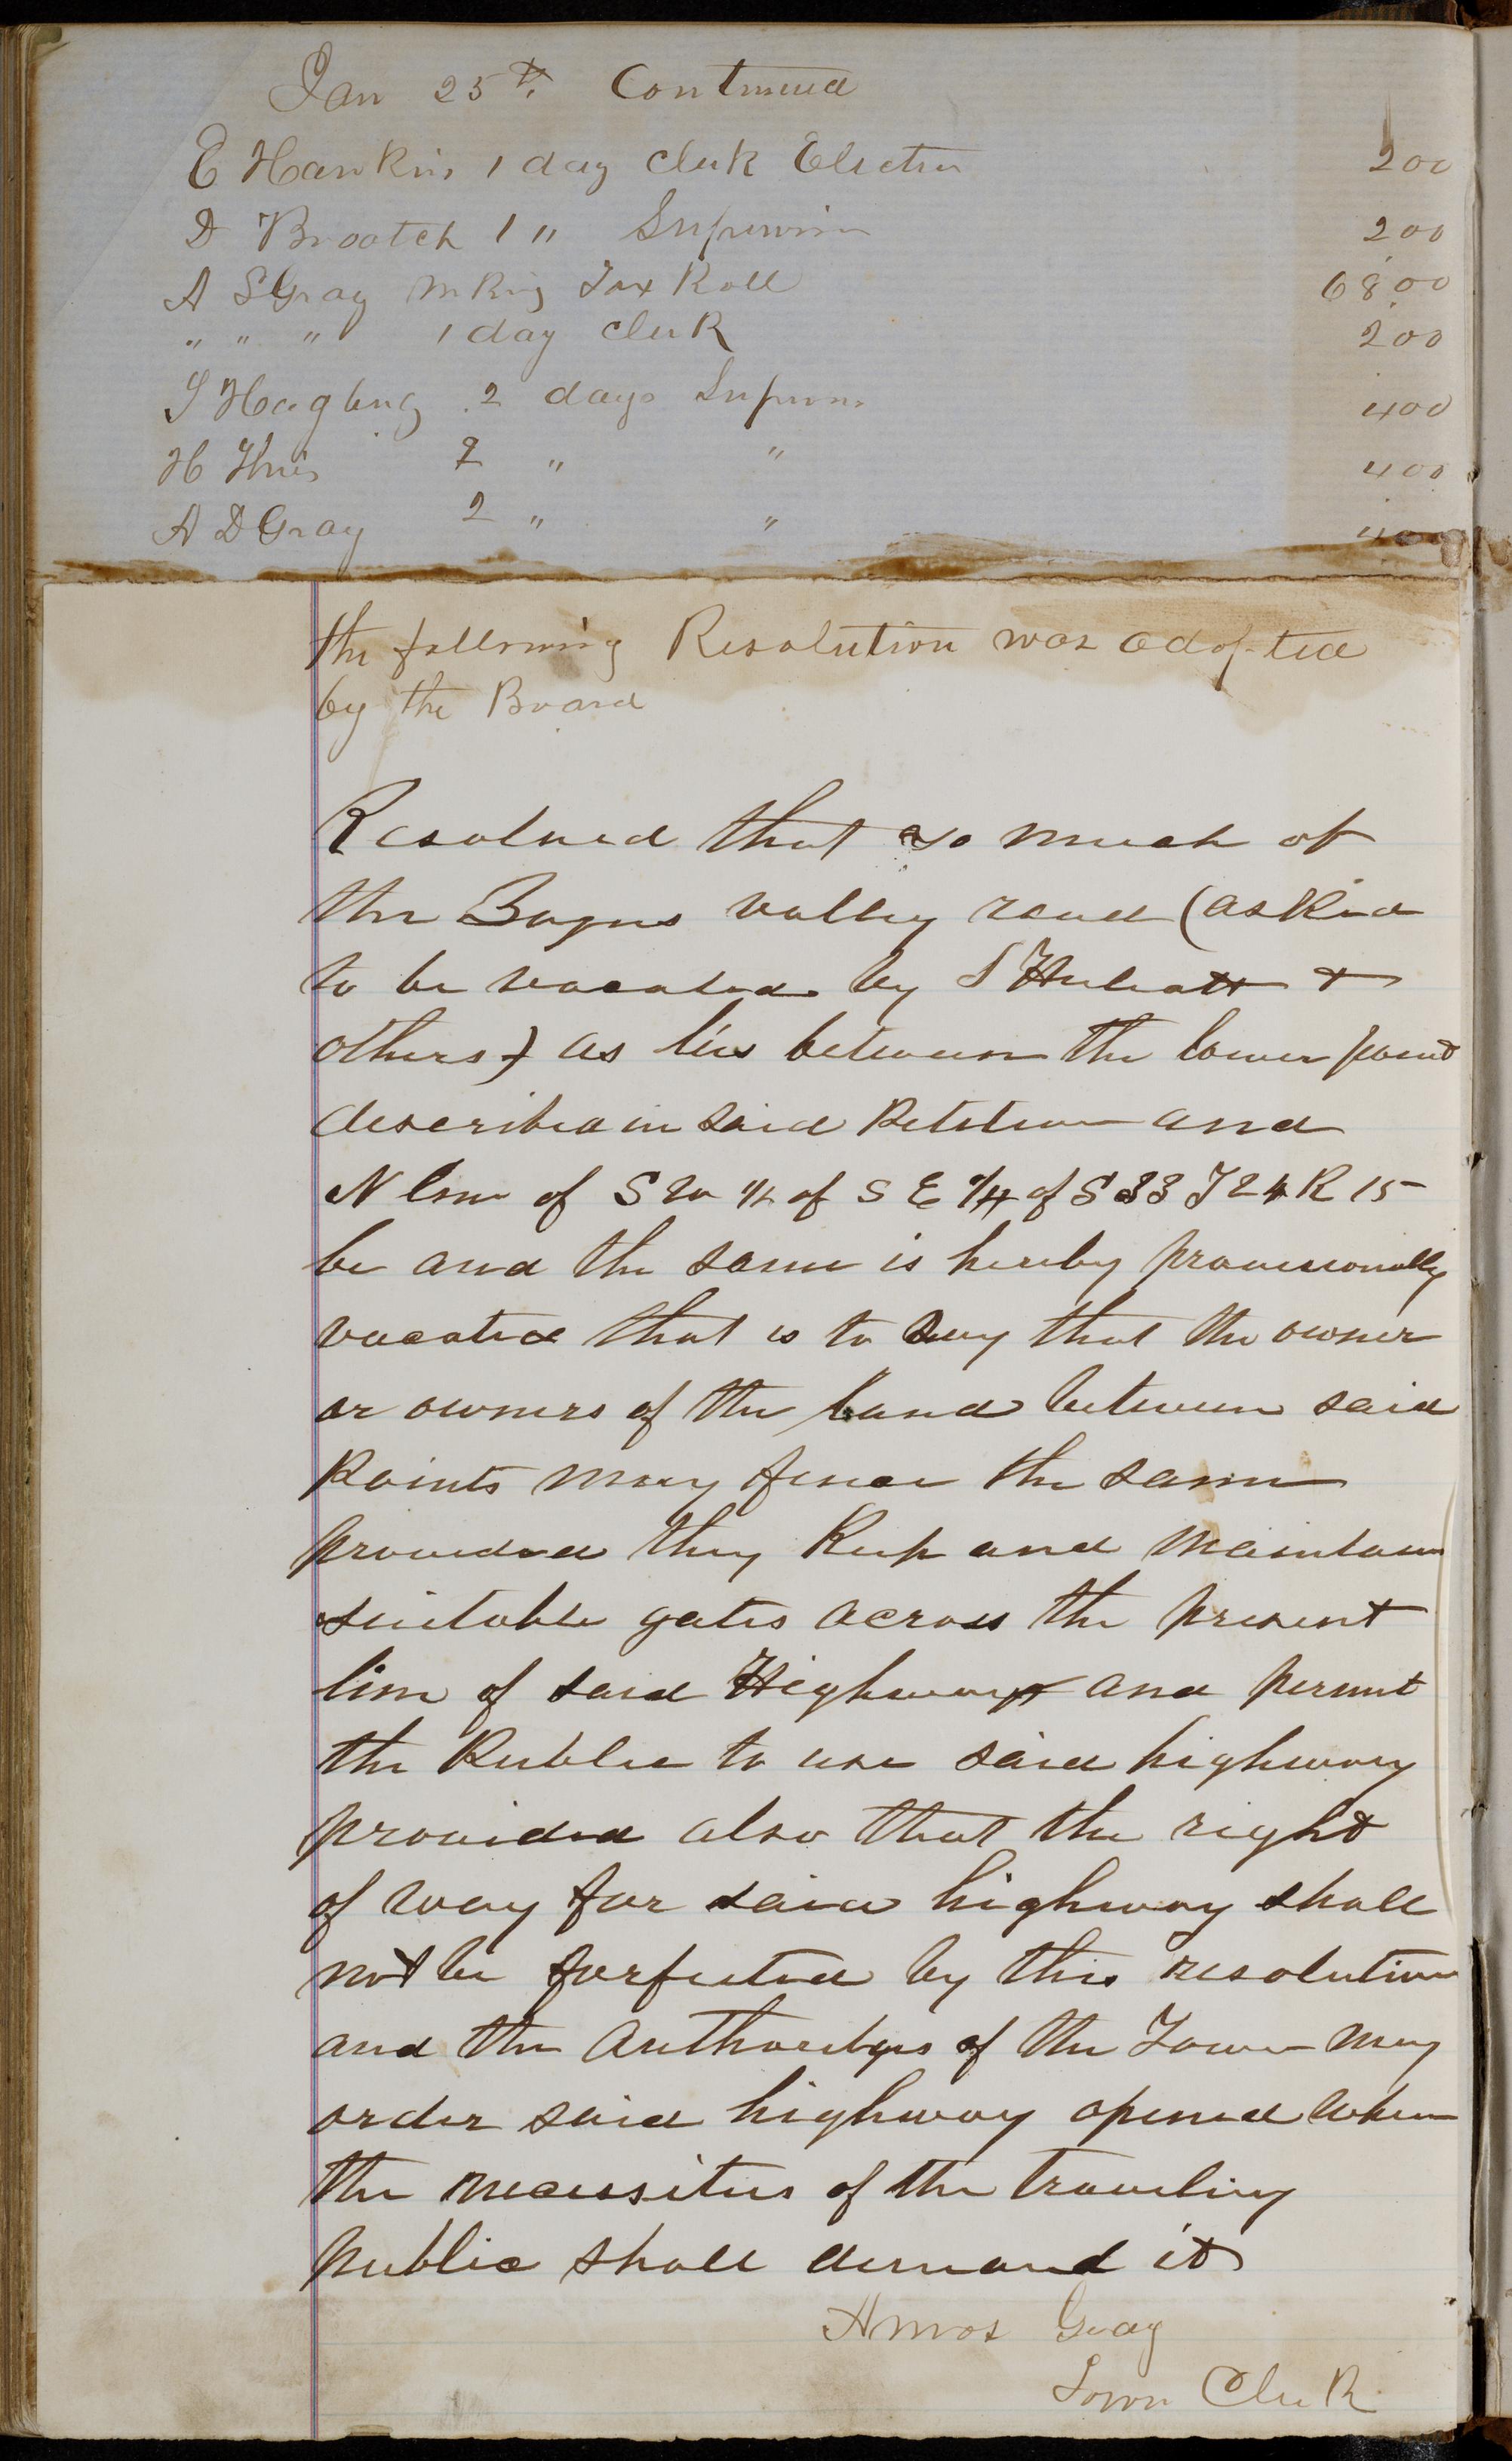 Jan 25th Continued
E Hawkins 1 day Clerk Election 200
D Broatch 1 " Supervisor 200
A S Gray mking Tax Roll 68,00
" " " 1 day Clerk 200
S Hagberg 2 days Supervisor 400
H 2 " " 400
A D Gray 2 " " 400
the following Resolution was adopted
by the Board
Resolved that so much of
the Bogus valley road (asked
to be vacated by &
others) as lies between the lower point
described in said Petition and
N line of S W 1/4 of S E 1/4 of S 33 T 24 R 15
be and the same is hereby provisionally
vacated that is to say that the owner
or owners of the land between said
Points may fence the same
provided they Keep and maintain
suitable gates across the present
line of said Highway and permit
the Public to use said highway
provided also that the right
of way for said highway shall
not be forfeited by this resolution
and the Authorities of the Town may
order said highway opened when
the necessities of the traveling
public shall demand it
Amos Gray
Town Clerk